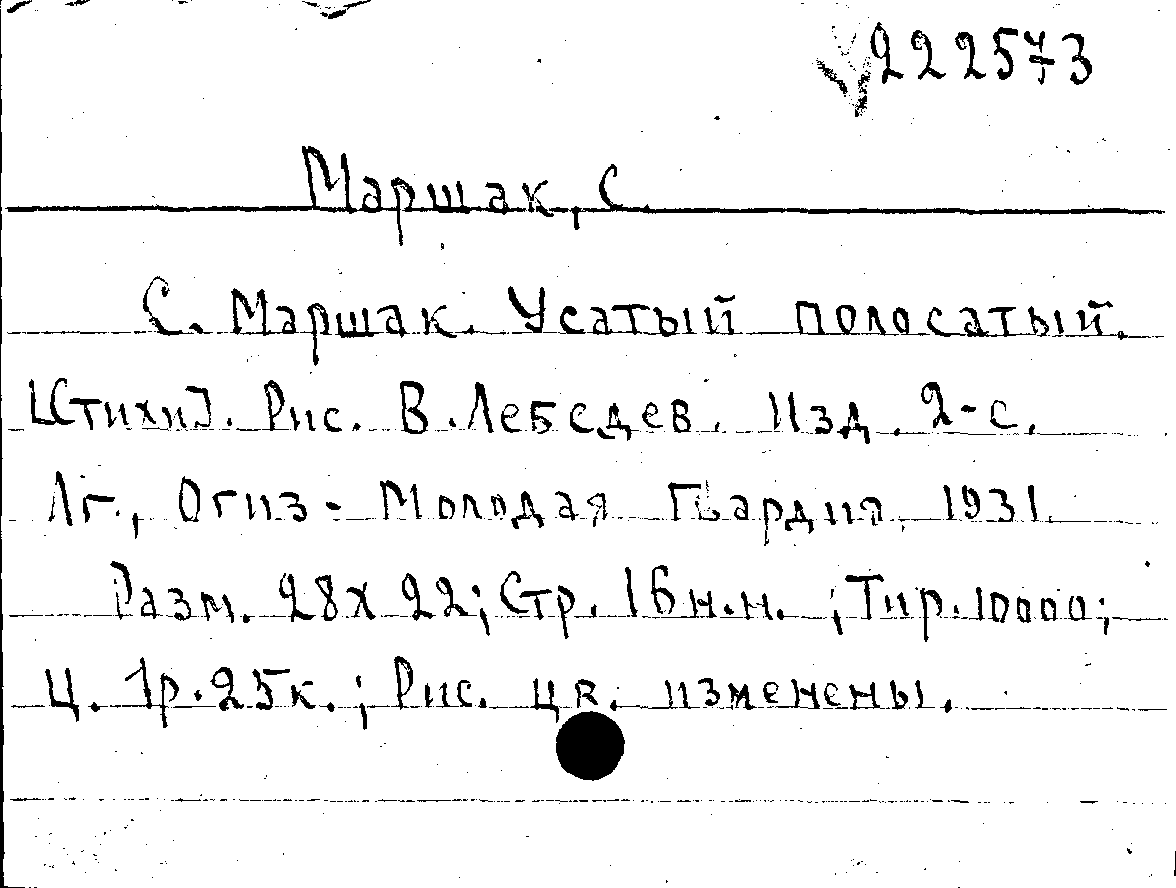 222573
Маршак, С.
С. Маршак. Усатый полосатый.
[Стихи]. Рис. В. Лебедев. Изд. 2-е.
Лг., Огиз - Молодая Гвардия, 1931.
Разм. 28х22; Стр. 16 н.н. ; Тир. 10000;
Ц. 1р.25к. ; Рис. цв. изменены.